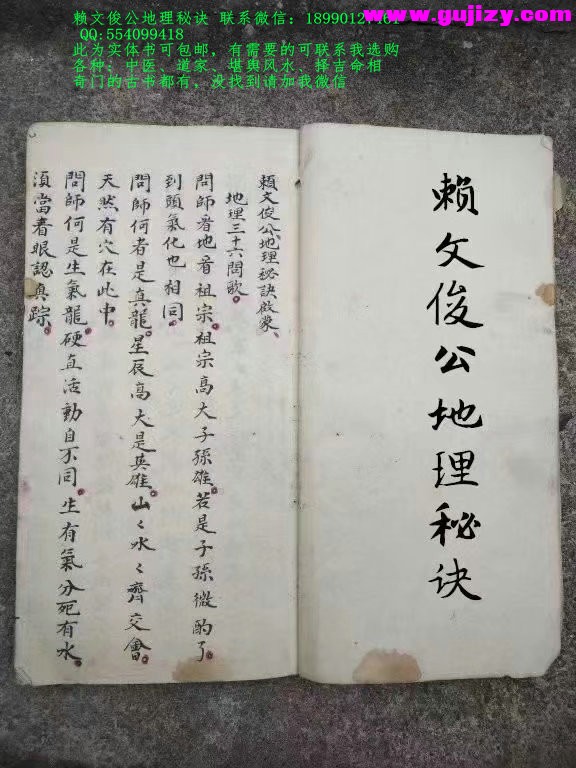 赖文俊公地理秘诀 联系微信：18990127461
www.gujizy.com
QQ:554099418
此为实体书可包邮，有需要的可联系我选购
各种：中医、道家、堪舆风水、择吉命相
奇门的古书都有，没找到请加我微信
賴文俊公地理秘诀
賴文俊公地理秘訣啟蒙、
地理三十六問歌。
問師看地看祖宗。祖宗高大子孫雄。若是子孫微酌了。
到頭氣化也相同。
問師何者是真龍。星辰高大是英雄。山〻水〻齊交會。
天然有穴在此中。
問師何是生氣龍。硬直活動自不同。生有氣分死有水。
須當着眼認真踪。